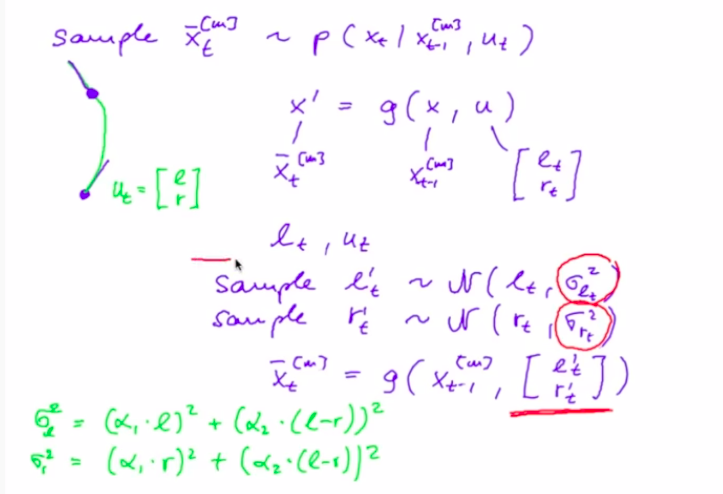 sample x̄_t^[m] ~ p(x_t | x_{t-1}^[m], u_t)
x' = g(x, u)
x̄_t^[m] x_{t-1}^[m] [l_t r_t]
u_t = [l r]
l_t, u_t
sample l'_t ~ N(l_t, σ_{l_t}^2)
sample r'_t ~ N(r_t, σ_{r_t}^2)
x̄_t^[m] = g(x_{t-1}^[m], [l'_t r'_t])
σ_l^2 = (α_1·l)^2 + (α_2·(l-r))^2
σ_r^2 = (α_1·r)^2 + (α_2·(l-r))^2